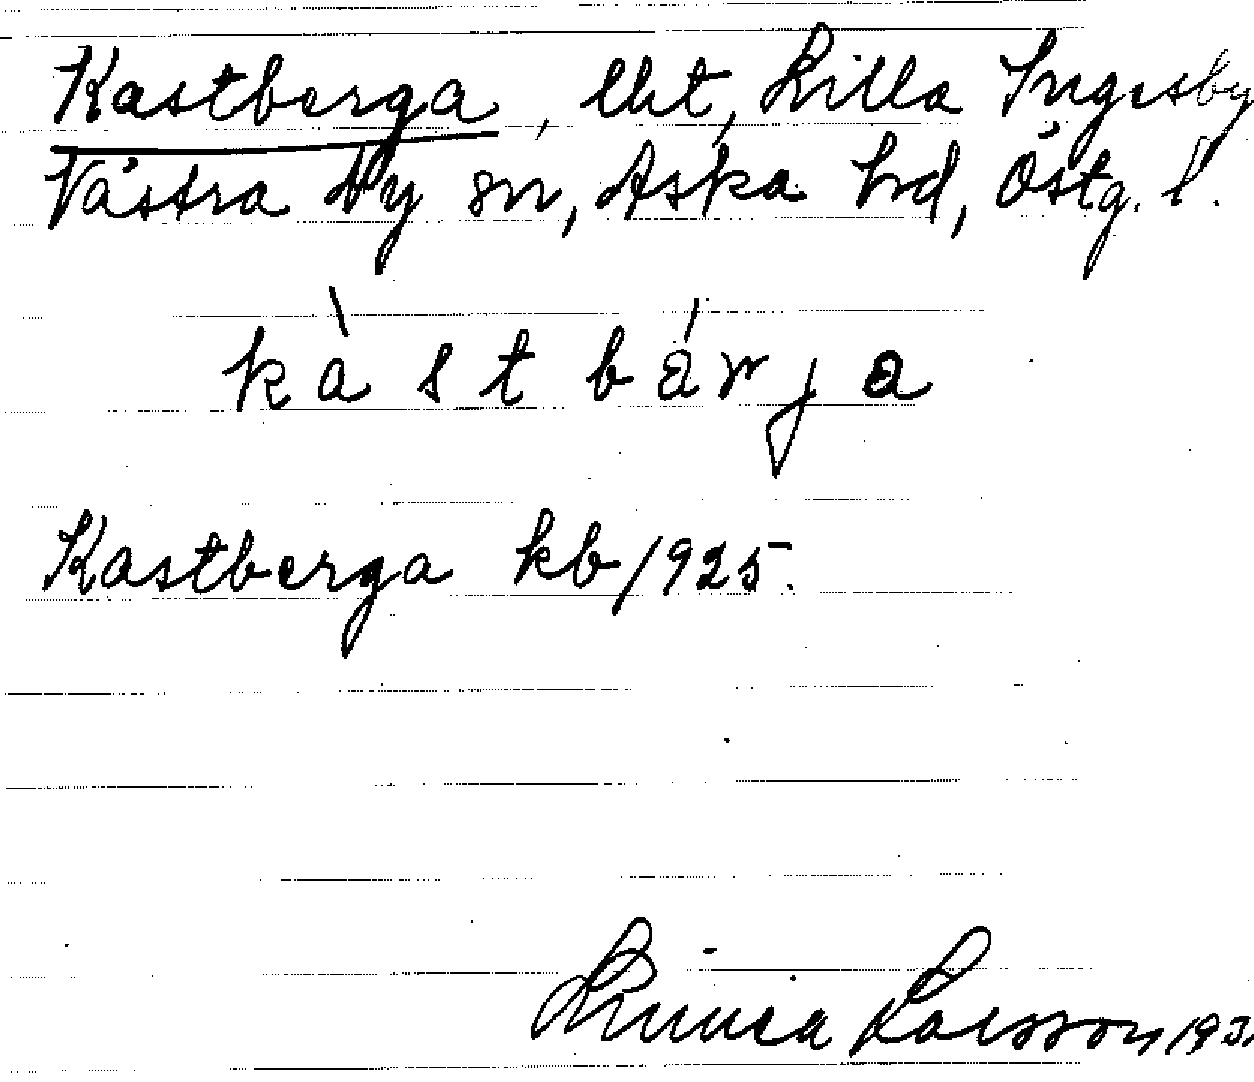 Kastberga, lht, Lilla Ingesby
Västra Ny sn, Aska hd, Östg. l.
kàstbárja
Kastberga kb/1925.
Linnea Larsson 193